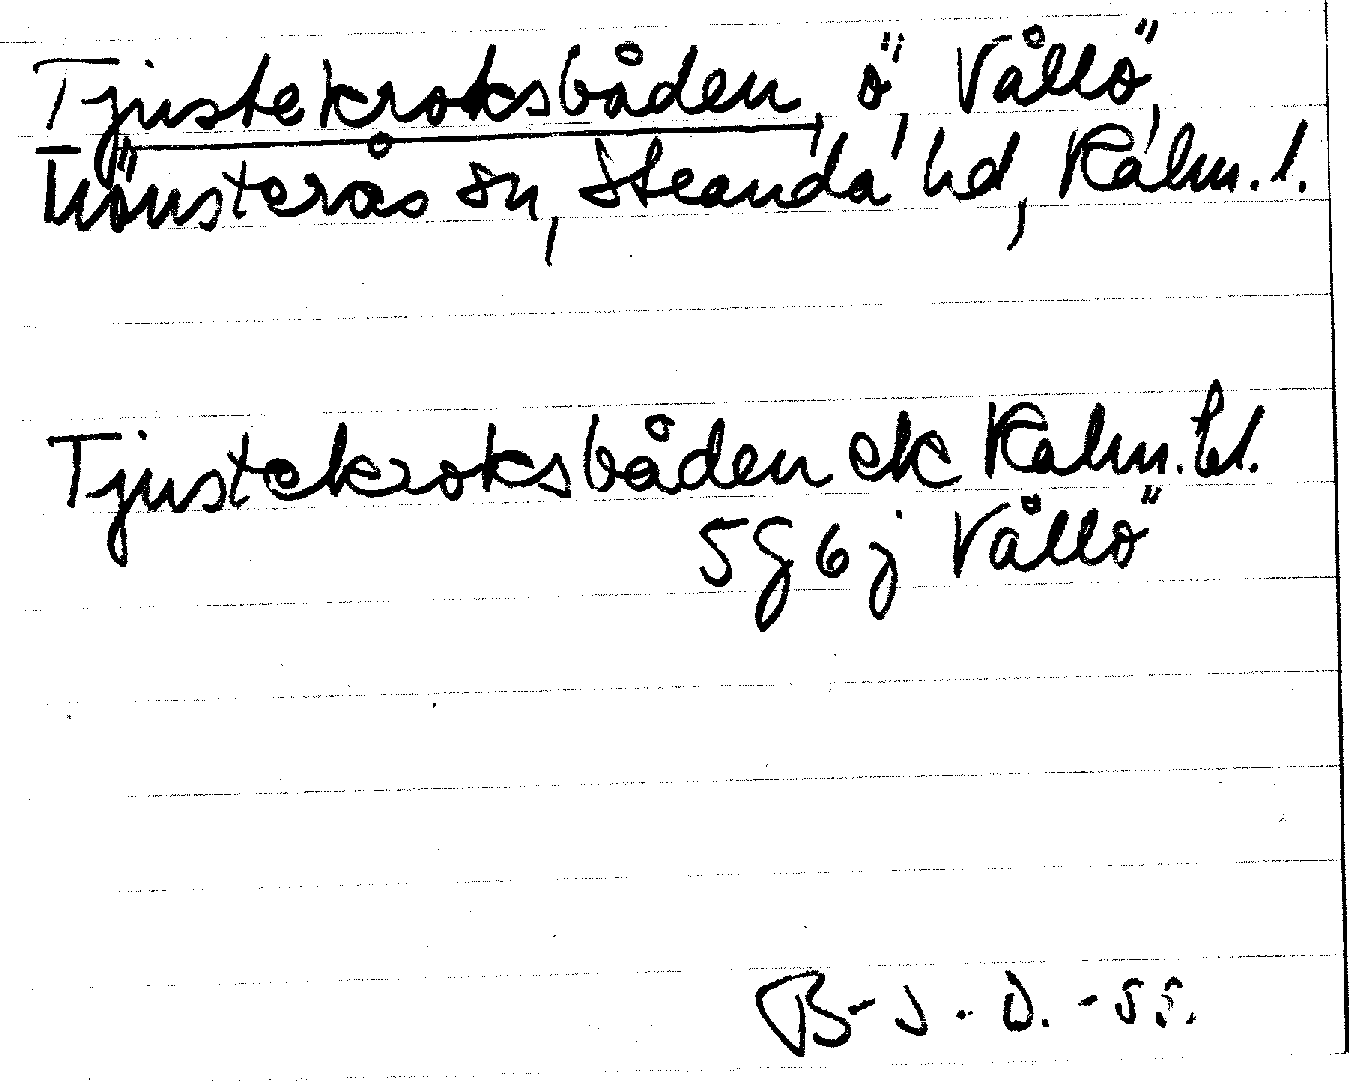 Tjustekroksbåden, ö, Vållö,
Mönsterås sn, Stranda hd, Kalm. l.
Tjustekroksbåden ek Kalm. bl.
5g6j Vållö
B-J. D. -55.